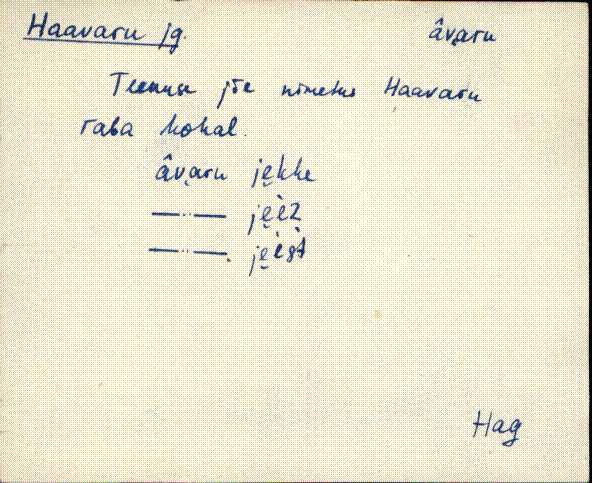 Haavaru jg. âvạru
Teenuse jõe nimetus Haavaru
raba kohal.
âvạru jẹkke
—"— jẹèz
—"—. jẹèst
Hag